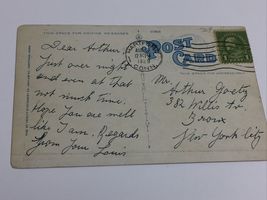 THIS SPACE FOR WRITING MESSAGES
POST
CARD
CONN.
Dear Arthur
Just over night
and even at that
not much time.
Hope you are well
like I am. Regards
from your Louis
Mr.
Arthur Goetz
382 Willis Av.
Bronx
New York City